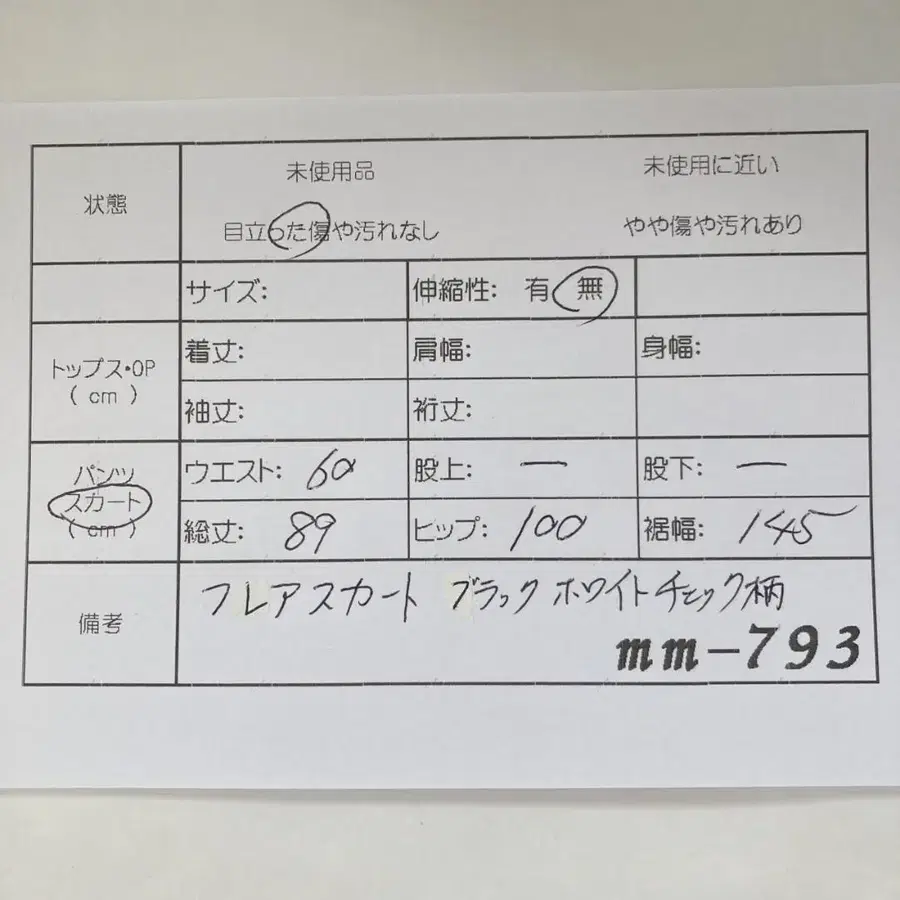 状態
未使用品 未使用に近い
目立った傷や汚れなし やや傷や汚れあり
サイズ: 伸縮性: 有 無
トップス・OP
( cm )
着丈: 肩幅: 身幅:
袖丈: 裄丈:
パンツ
スカート
( cm )
ウエスト: 60 股上: — 股下: —
総丈: 89 ヒップ: 100 裾幅: 145
備考
フレアスカート ブラック ホワイト チェック柄
mm-793